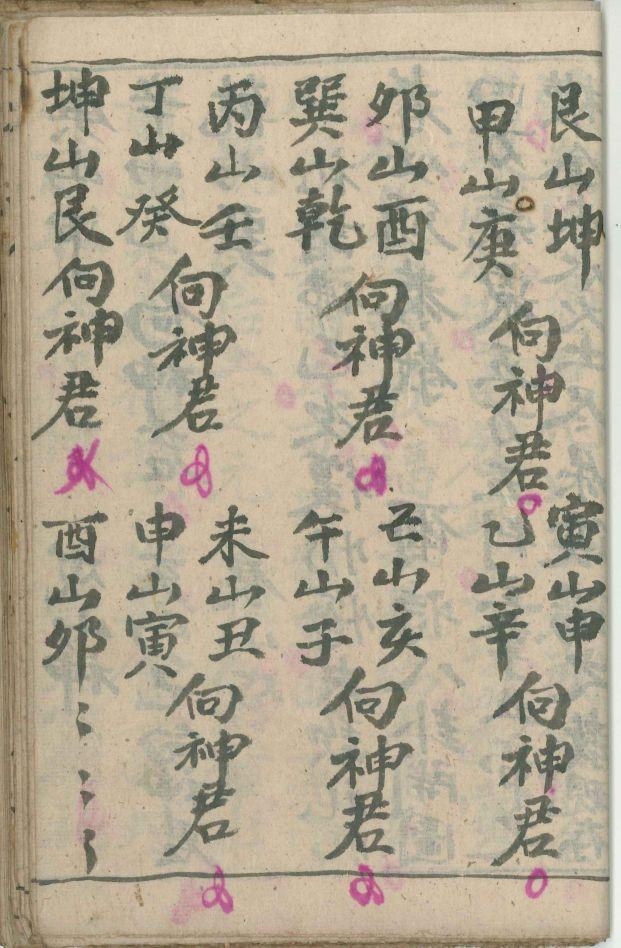 艮山坤
甲山庚
向神君
寅山申
乙山辛
向神君
夘山酉
巽山乾
向神君
亡山亥
午山子
向神君
丙山壬
丁山癸
向神君
未山丑
申山寅
向神君
坤山艮向神君
酉山夘〻〻〻